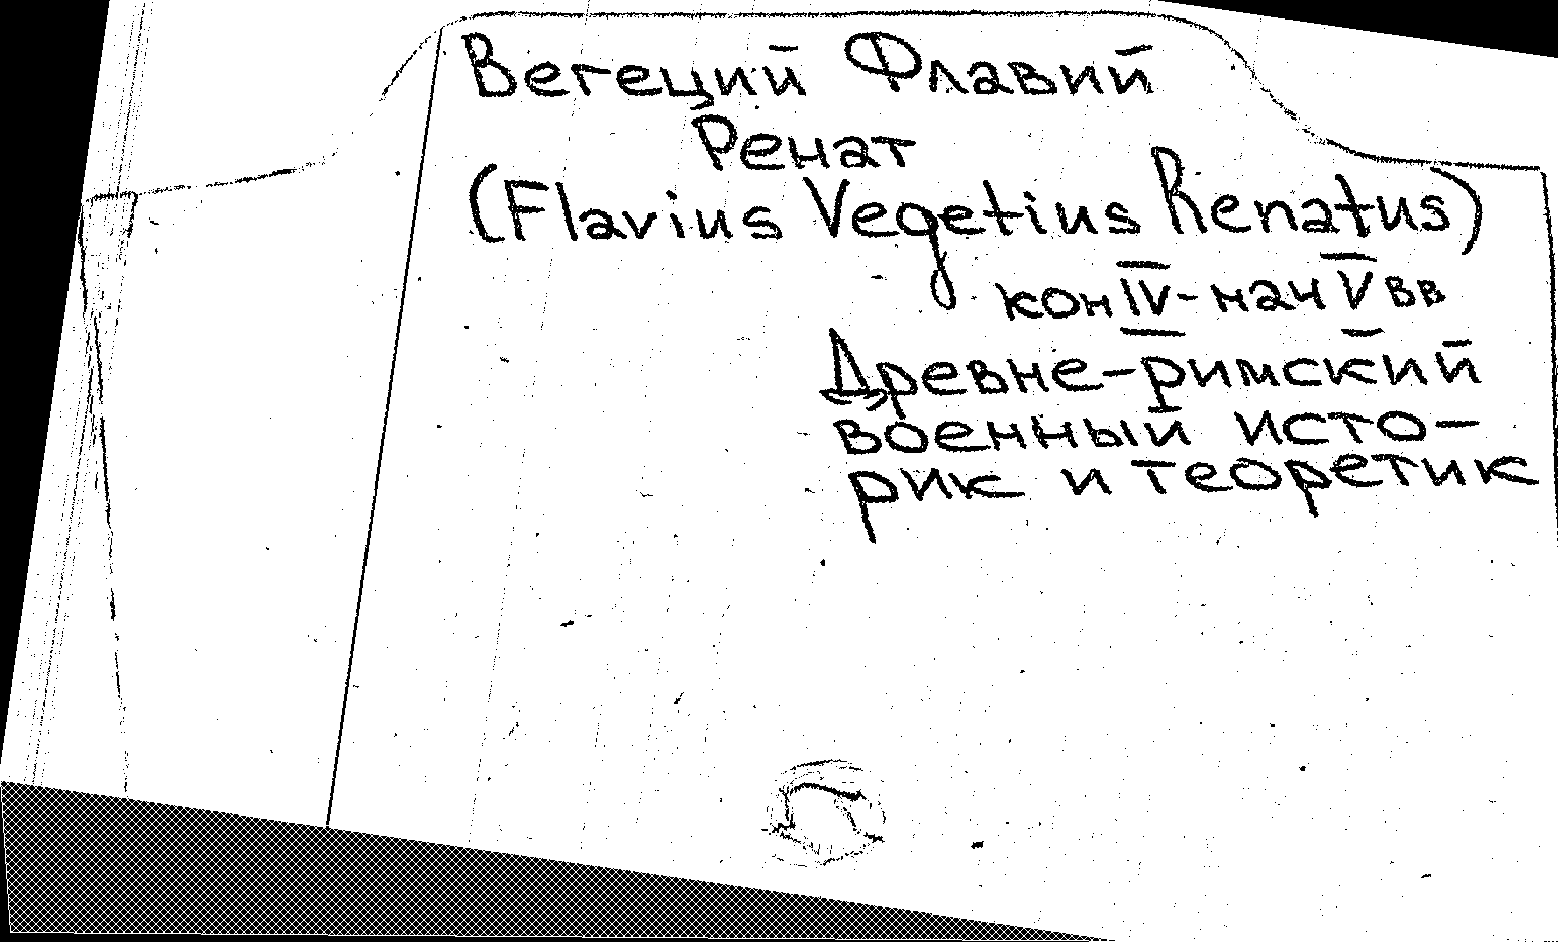 Вегеций Флавий
Ренат
(Flavius Vegetius Renatus)
кон IV - нач V вв
Древне-римский
военный исто-
рик и теоретик